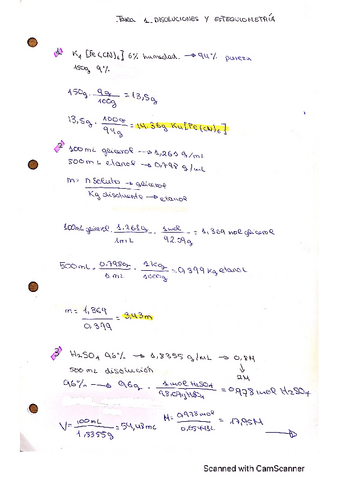 Tarea 1. DISOLUCIONES Y ESTEQUIOMETRÍA
1) K4 [Fe(CN)6] 6% humedad. → 94% pureza
150g 9%
150g · 9g / 100g = 13,5g
13,5g · 100g / 94g = 14.36g K4[Fe(CN)6]
2) 100mL glicerol --> 1,261 g/ml
500mL etanol → 0,798 g/mL
m = n soluto → glicerol / Kg disolvente → etanol
100mL glicerol · 1,261g / 1mL · 1mol / 92.09g = 1,369 mol glicerol
500mL · 0,798g / 1mL · 1Kg / 1000g = 0,399 Kg etanol
m = 1,369 / 0,399 = 3,43m
3) H2SO4 96% → 1,8355 g/mL → 0,8M
500 mL disolución
96% → 96g · 1 mol H2SO4 / H2SO4 = 0,978 mol H2SO4
V = 100mL / 1,8355g = 54,48mL M = 0,978mol / 0,05448L = 17,95M
Scanned with CamScanner